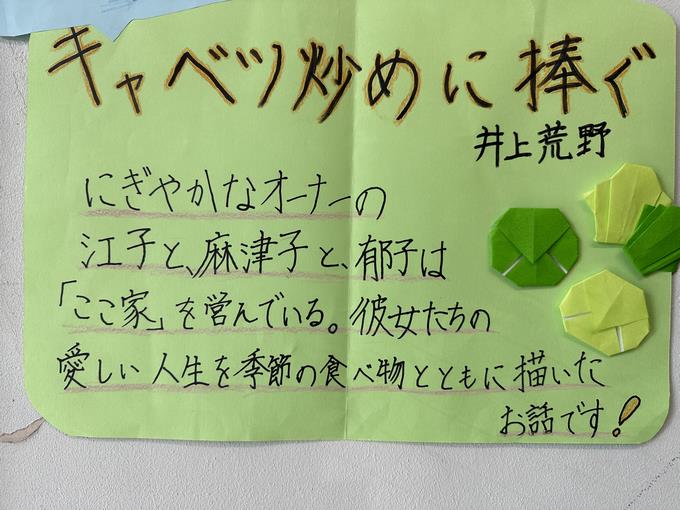 キャベツ炒めに捧ぐ
井上荒野
にぎやかなオーナーの
江子と、麻津子と、郁子は
「ここ家」を営んでいる。彼女たちの
愛しい人生を季節の食べ物とともに描いた
お話です!